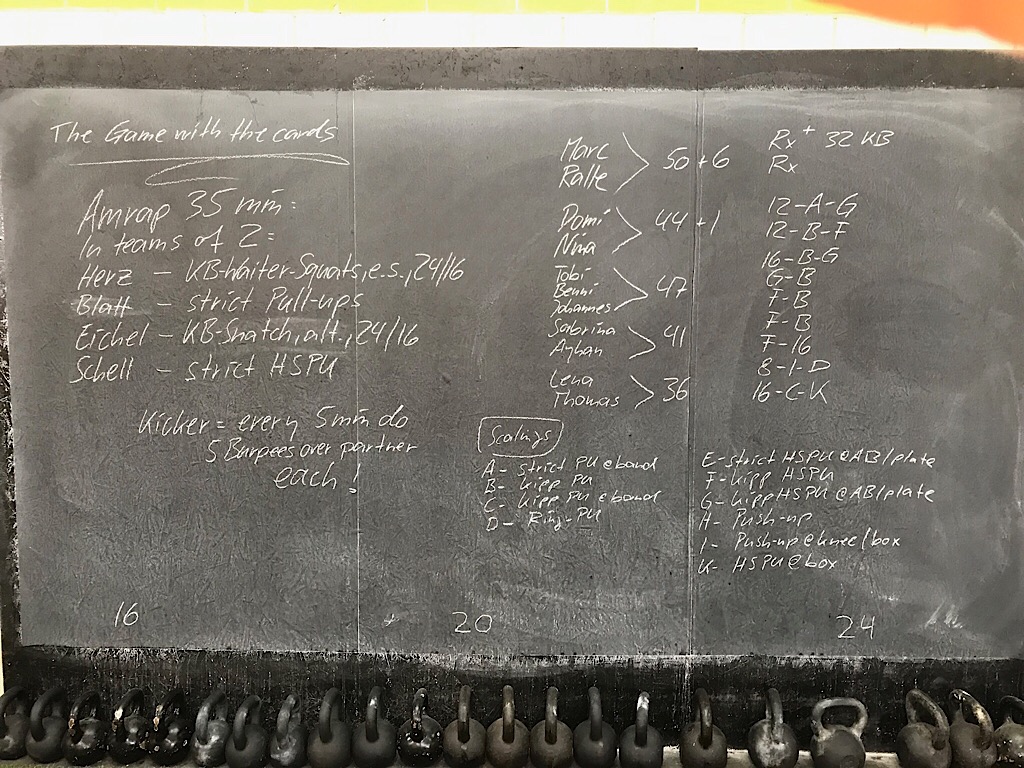 The Game with the cards
Amrap 35 min:
In teams of 2:
Herz – KB-Waiter-Squats, e.s., 24/16
Blatt – strict Pull-ups
Eichel – KB-Snatch, alt., 24/16
Schell – strict HSPU
Kicker = every 5min do
5 Burpees over partner
each!
Marc
Ralle
50+6
Domi
Nina
44+1
Tobi
Benni
Johannes
47
Sabrina
Ayhan
41
Lena
Thomas
36
Rx+ 32 KB
Rx
12-A-G
12-B-F
16-B-G
G-B
F-B
F-B
F-16
8-I-D
16-C-K
Scalings
A- strict PU @band
B- kipp PU
C- kipp PU @band
D- Ring-PU
E-strict HSPU @AB/plate
F-kipp HSPU
G-kipp HSPU @AB/plate
H- Push-up
I- Push-up @knee/box
K- HSPU @box
16
20
24